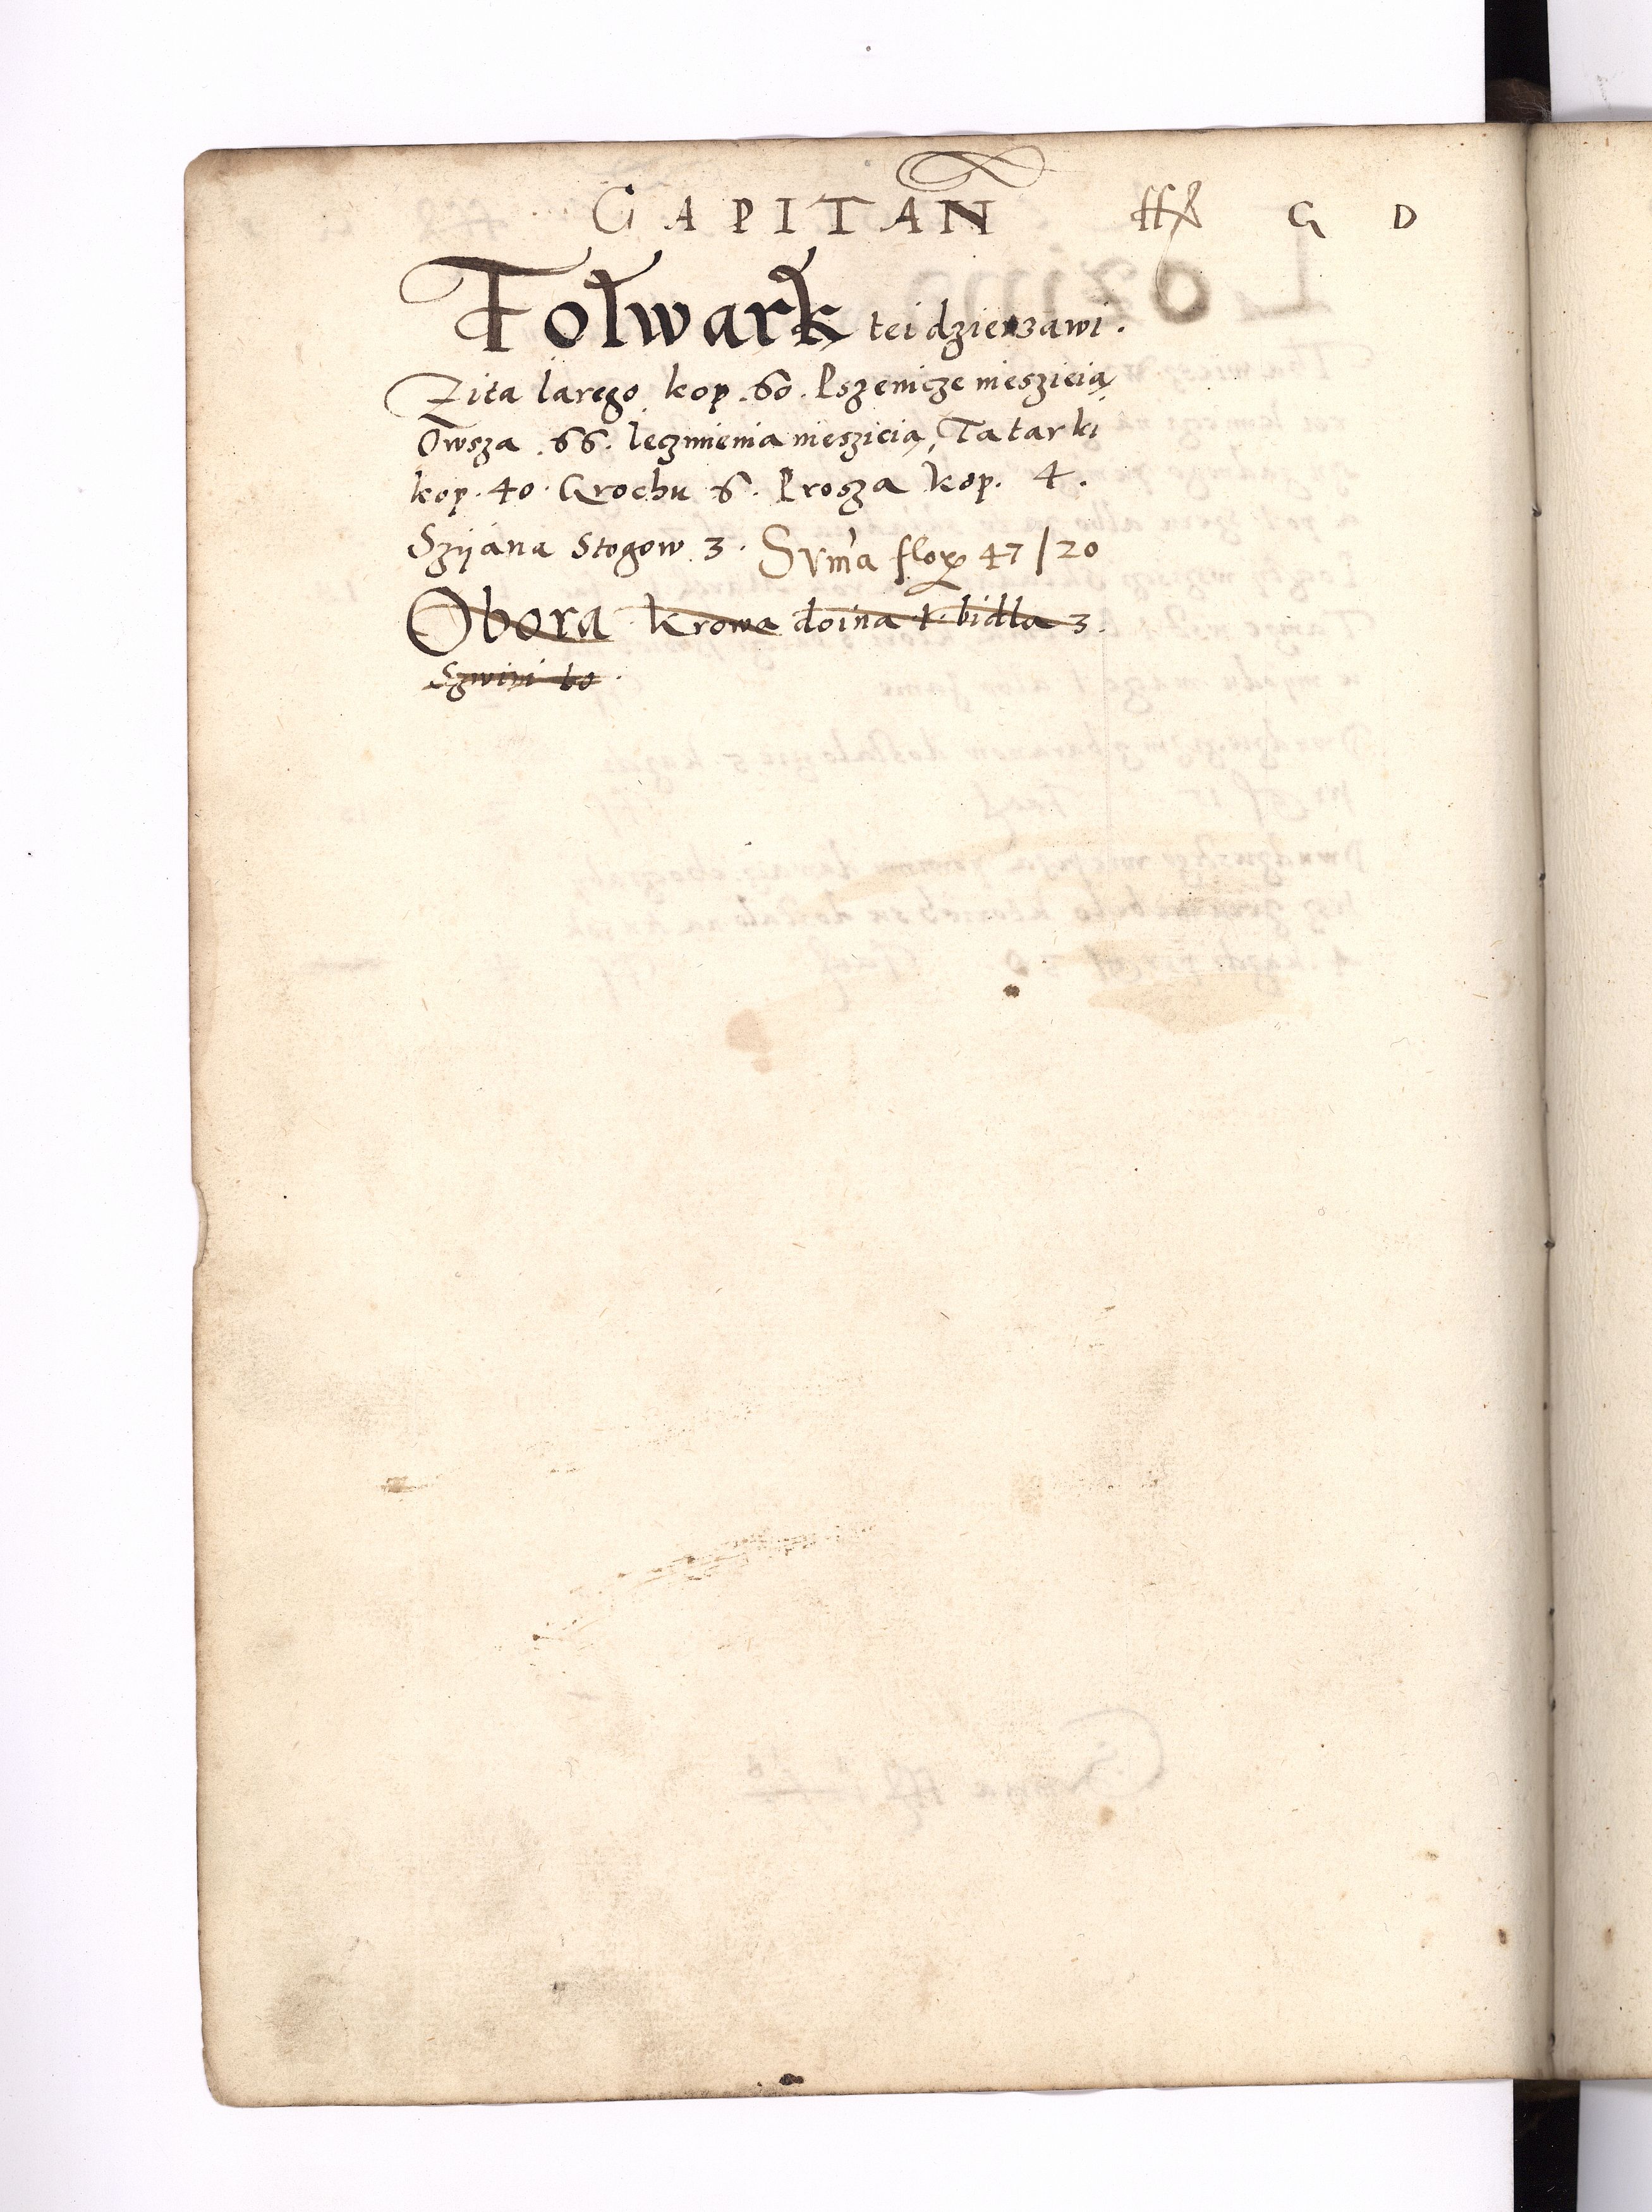 CAPITAN ff G D
Folwark tei dzierzawi.
Zita Iarego kop .60. Pszenicze nieszieią
Owsza .66. Ieczmienia nieszieią, Tatarki
kop. 40. Grochu 6. Prosza kop. 4.
Szijana Stogow 3. Sum̃a flor 47/20
Obora Krowa doina 1. bidla 3.
Szwini